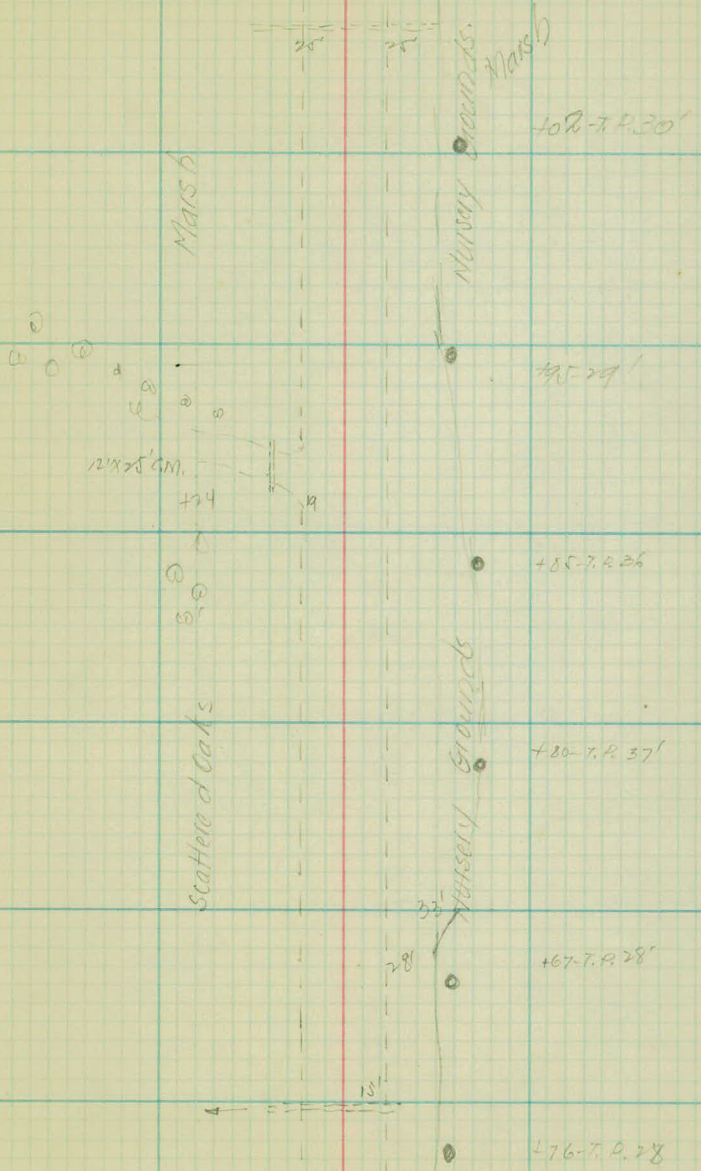 25' 25'
Nursery Grounds.
Marsh
+02-T.P. 30'
Marsh
+95-29'
12"x25' C.M.
+24
19
+85-T.P. 36
Scattered Oaks
Nursery Grounds
+80-T.P. 37'
33'
28'
+67-T.P. 28'
15'
+76-T.P. 28